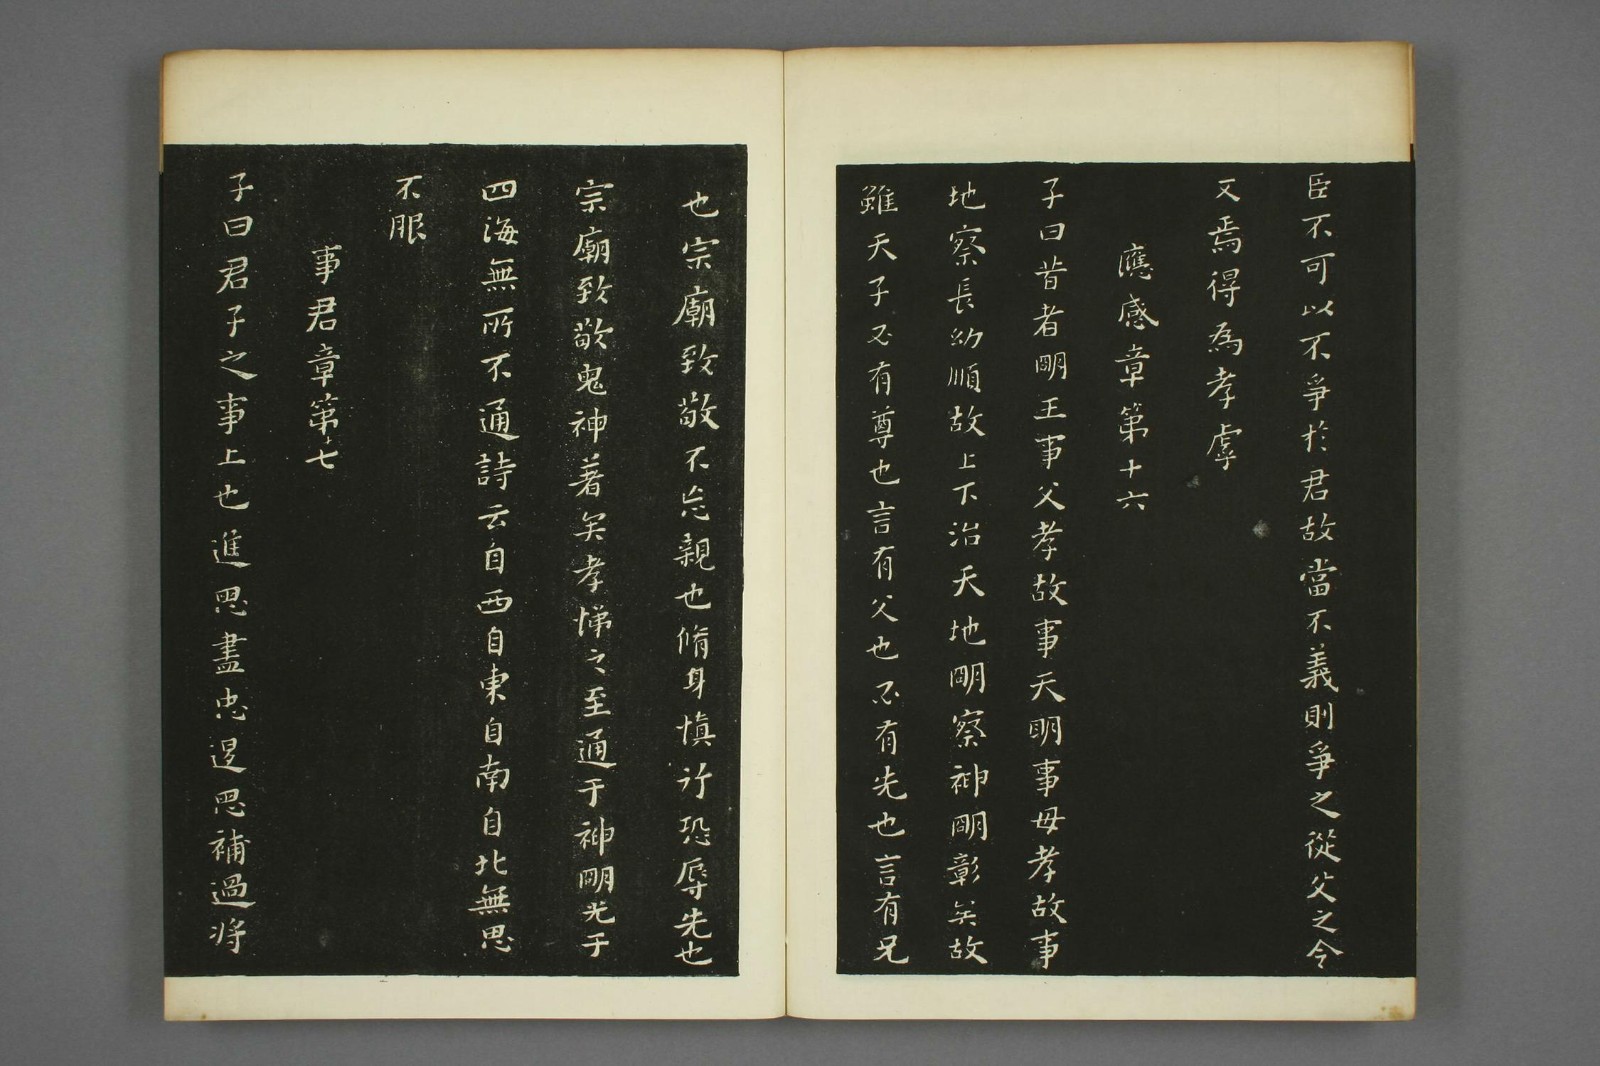 臣不可以不爭於君故當不義則爭之從父之令
又焉得為孝虖
應感章第十六
子曰昔者朙王事父孝故事天明事母孝故事
地察長幼順故上下治天地朙察神朙彰矣故
雖天子必有尊也言有父也必有先也言有兄
也宗廟致敬不忘親也脩身慎行恐辱先也
宗廟致敬鬼神著矣孝悌之至通于神朙光于
四海無所不通詩云自西自東自南自北無思
不服
事君章第十七
子曰君子之事上也進思盡忠退思補過將